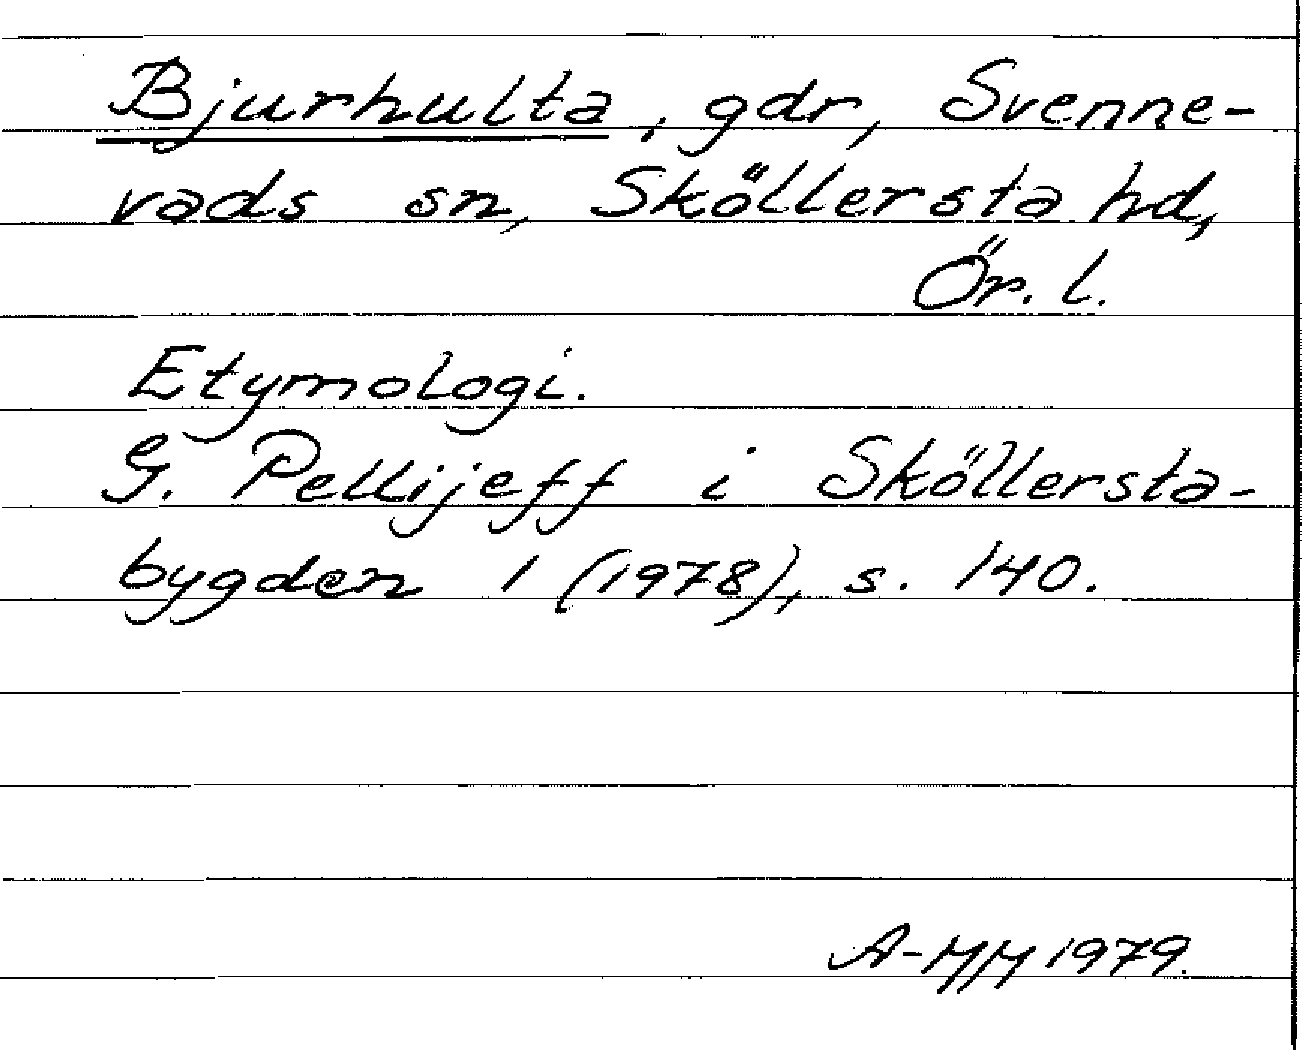 Bjurhulta, gdr, Svenne-
vads sn, Sköllersta hd,
Ör. l.
Etymologi.
G. Pellijeff i Sköllersta-
bygden 1 (1978), s. 140.
1979.